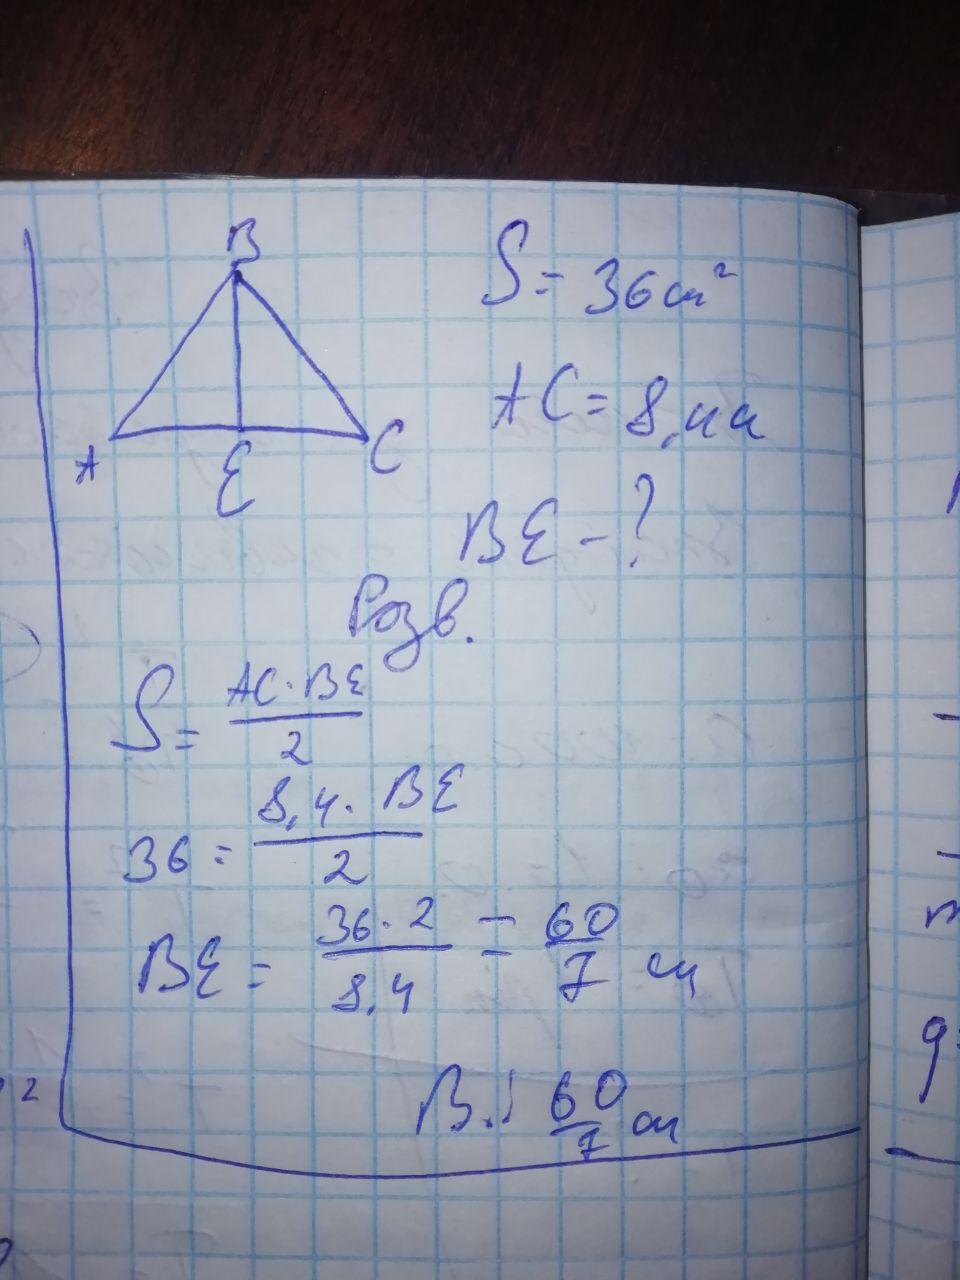 B
A
E
C
S = 36 см²
AC = 8,4 см
BE - ?
Розв.
S = AC · BE / 2
36 = 8,4 · BE / 2
BE = 36 · 2 / 8,4 = 60 / 7 см
В.: 60 / 7 см
2